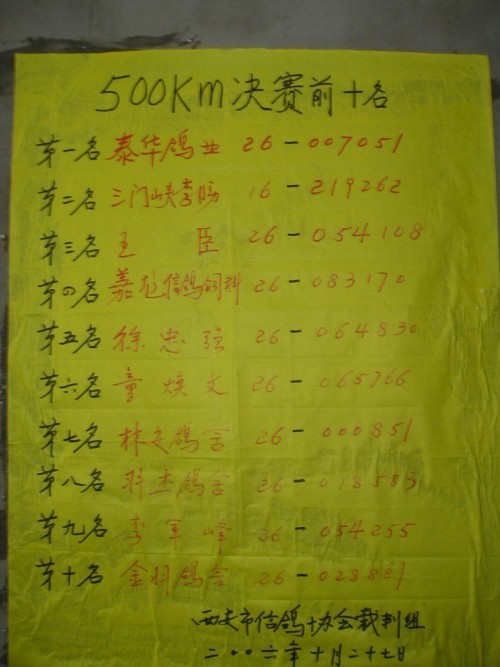 500Km决赛前十名
第一名 泰华鸽业 26-007051
第二名 三门峡李旸 16-219262
第三名 王臣 26-054108
第四名 嘉龙信鸽饲料 26-083170
第五名 徐忠弦 26-064830
第六名 童焕文 26-065766
第七名 林安鸽舍 26-000851
第八名 科杰鸽舍 26-018583
第九名 李军峰 26-054255
第十名 金羽鸽舍 26-028881
西安市信鸽协会裁判组
二00六年十月二十七日